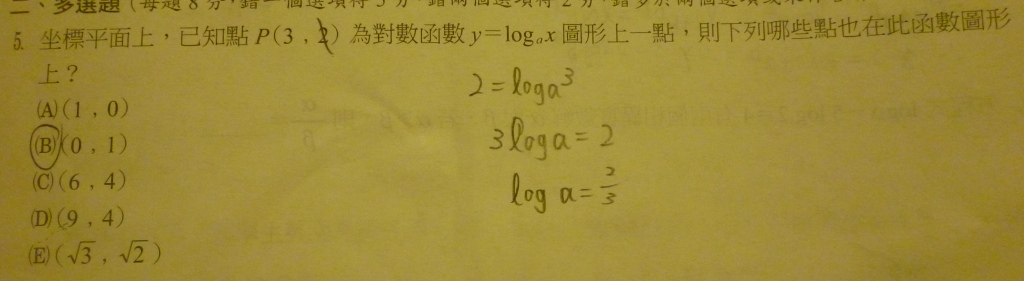 二、多選題(每題8分,錯一個選項得5分,錯兩個選項得2分,錯多於兩個選項或
5. 坐標平面上,已知點P(3,2)為對數函數y=logₐx圖形上一點,則下列哪些點也在此函數圖形
上?
(A)(1,0)
(B)(0,1)
(C)(6,4)
(D)(9,4)
(E)(√3,√2)
2=loga³
3loga=2
log a=2/3